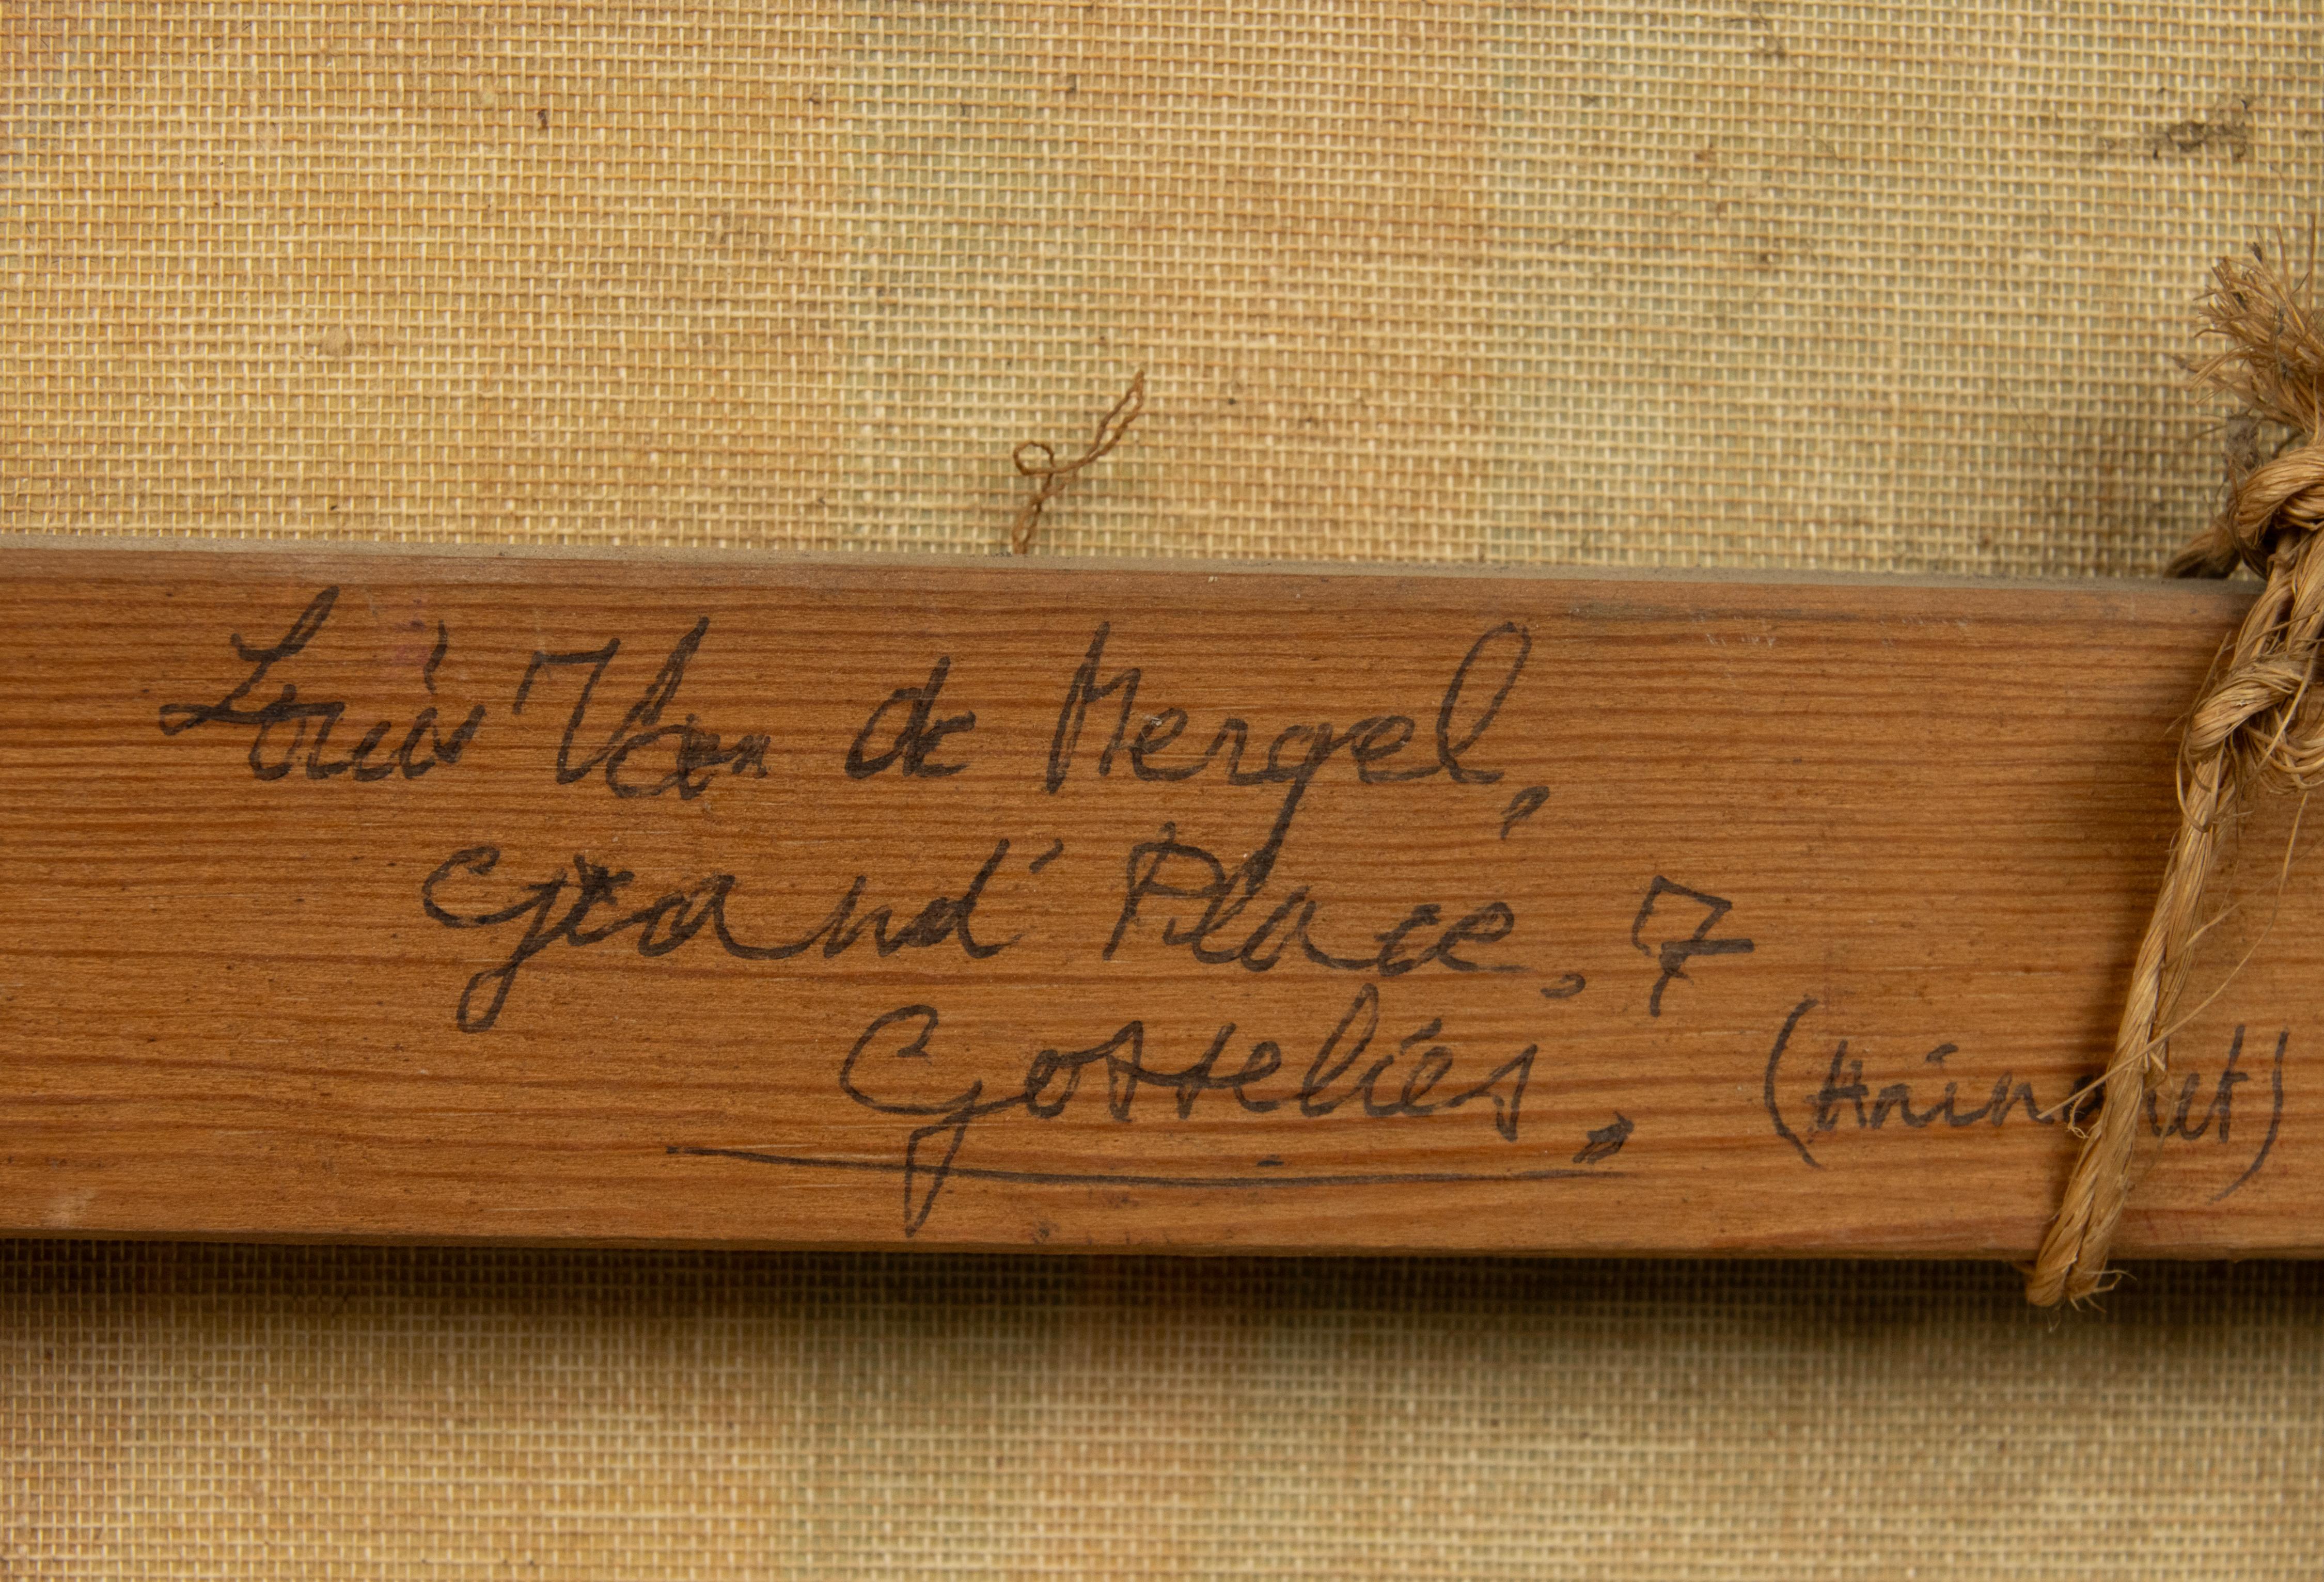 Louis Van de Mergel,
Grand' Place, 7
Gosselies, (Hainaut)